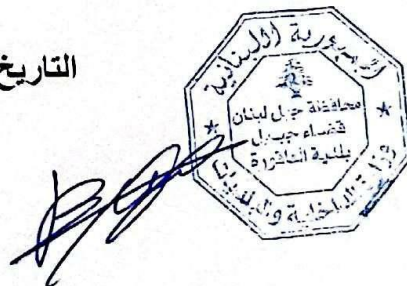 التاريخ
الجمهورية اللبنانية
محافظة جبل لبنان
قضاء جبيل
بلدية
وزارة الداخلية والبلديات